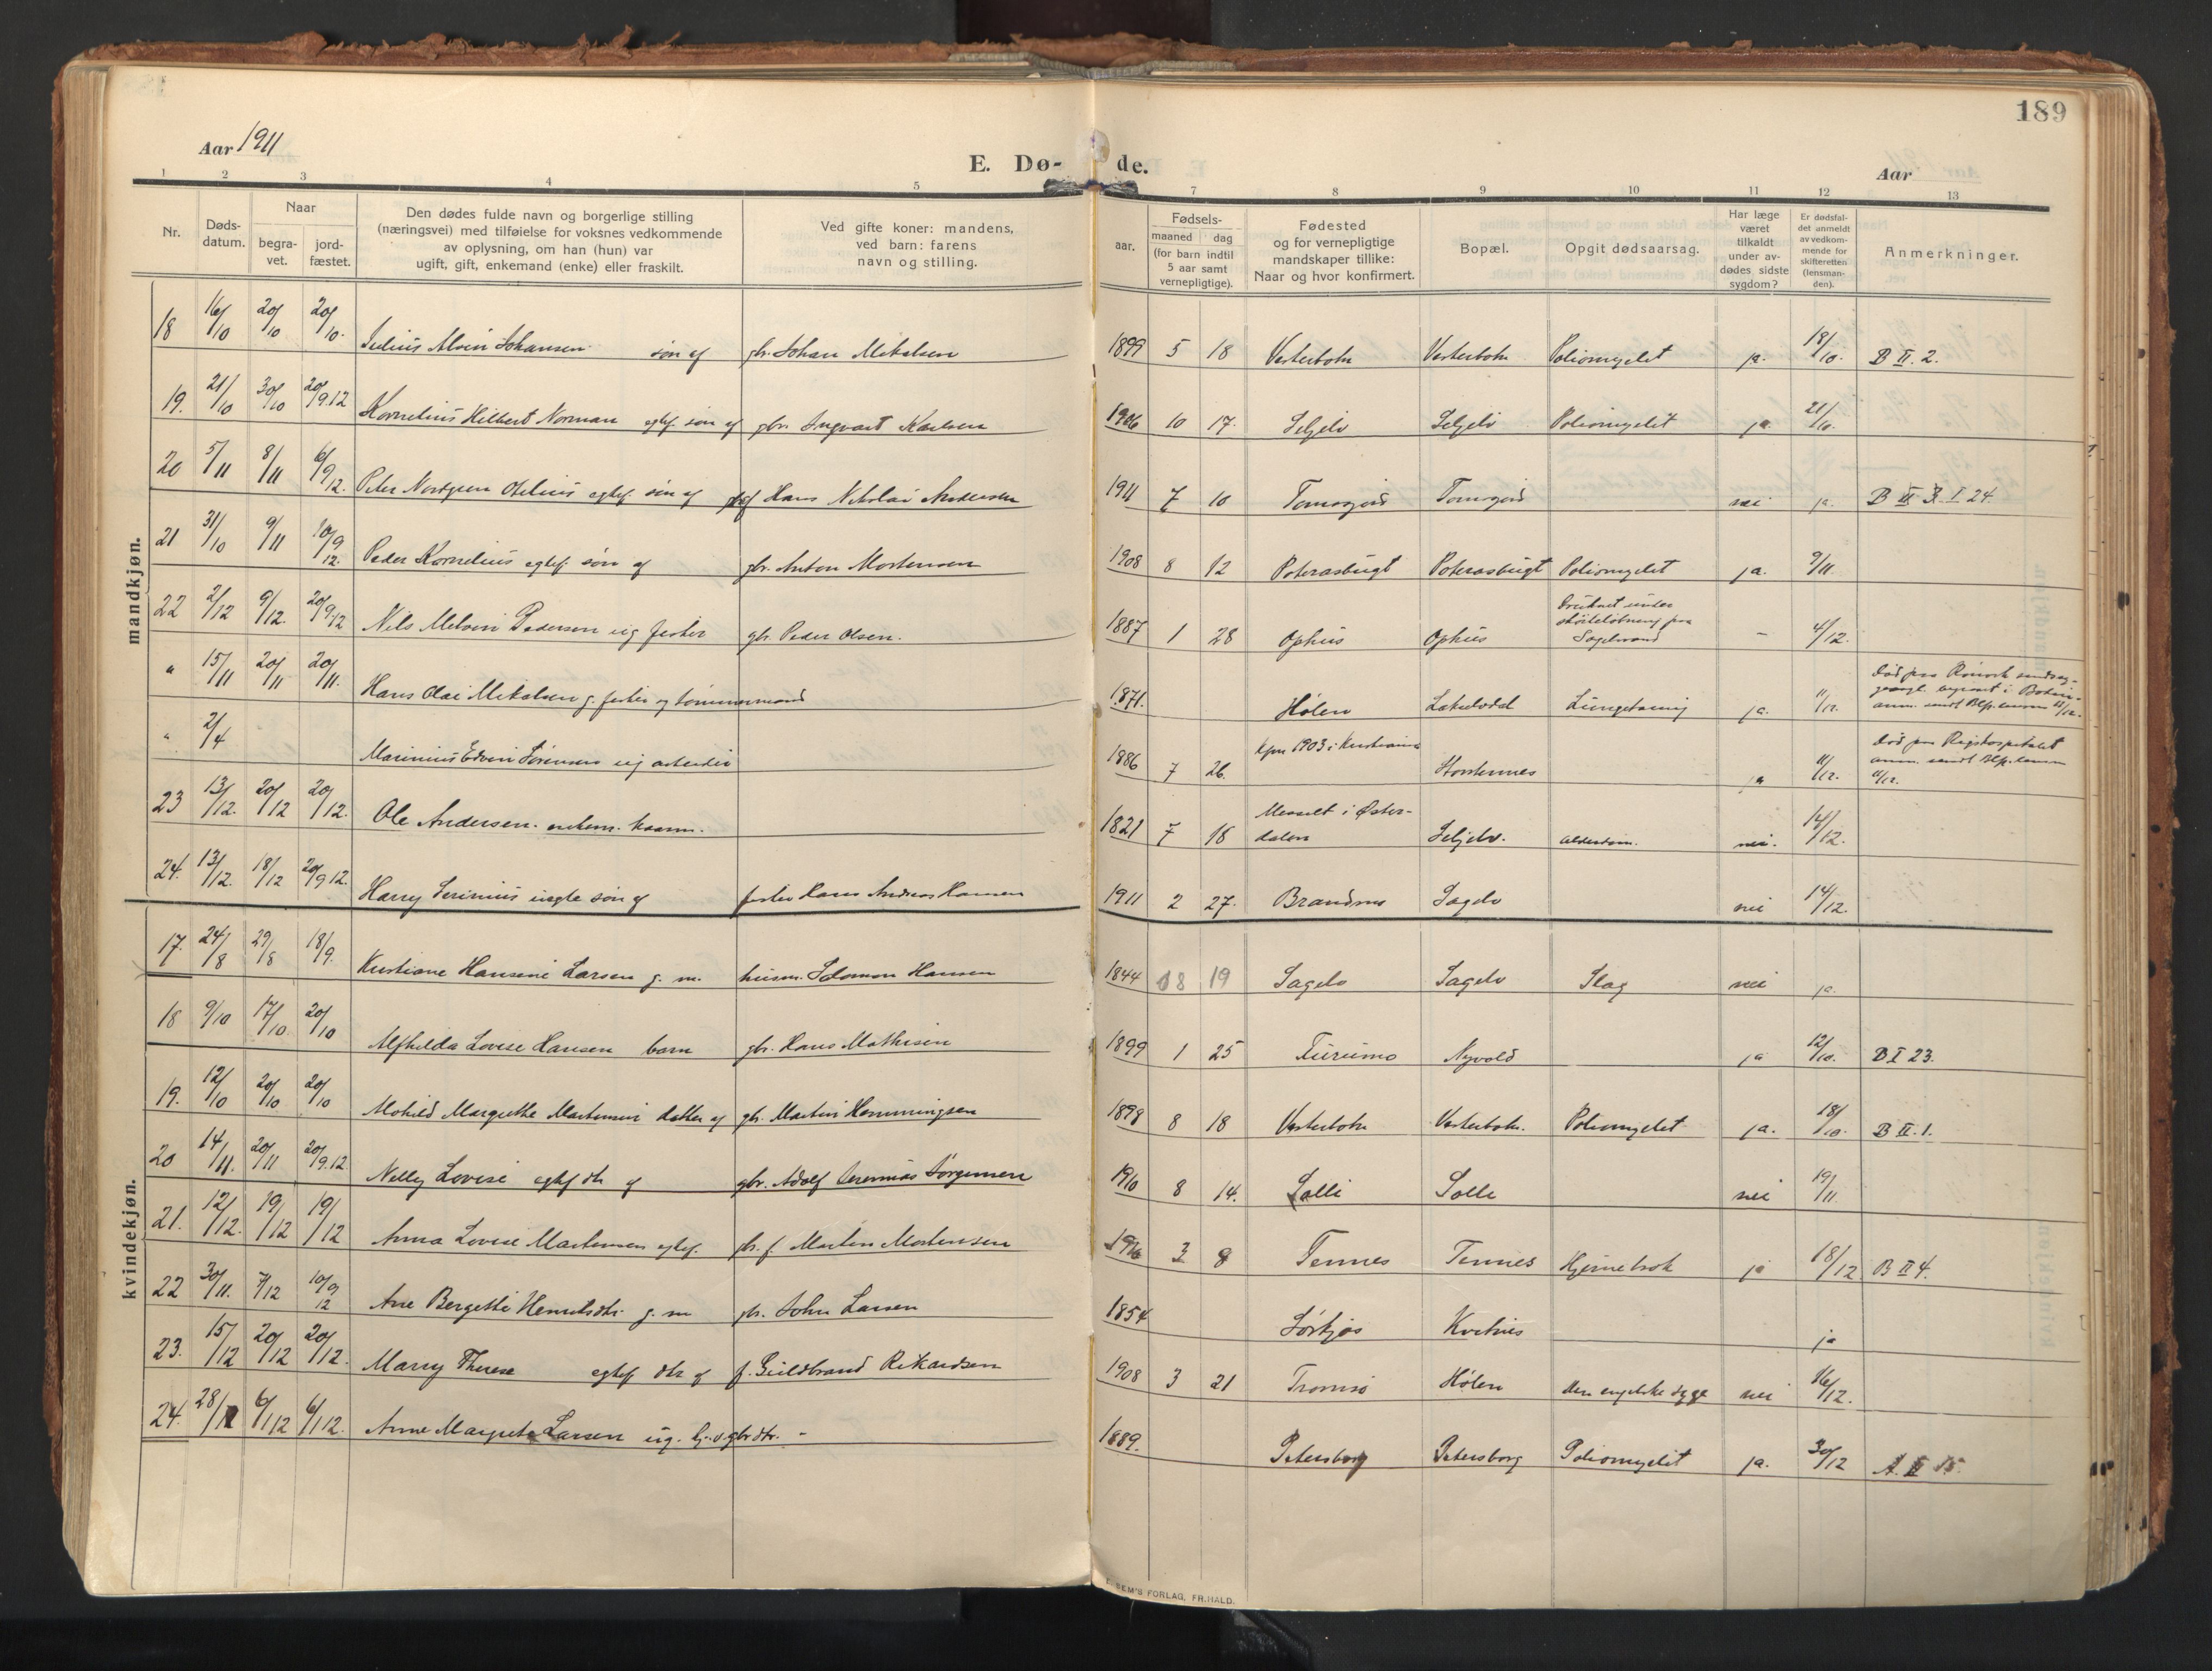 189
Aar 1911
E. Dø- de.
Aar
1 2 3 4 5 7 8 9 10 11 12 13
Nr.
Døds-
datum.
Naar
begra-
vet.
jord-
fæstet.
Den dødes fulde navn og borgerlige stilling
(næringsvei) med tilføielse for voksnes vedkommende
av oplysning, om han (hun) var
ugift, gift, enkemand (enke) eller fraskilt.
Ved gifte koner: mandens,
ved barn: farens
navn og stilling.
aar.
Fødsels-
maaned dag
(for barn indtil
5 aar samt
vernepligtige).
Fødested
og for vernepligtige
mandskaper tillike:
Naar og hvor konfirmert.
Bopæl.
Opgit dødsaarsag.
Har læge
været
tilkaldt
under av-
dødes sidste
sygdom?
Er dødsfal-
det anmeldt
av vedkom-
mende for
skifteretten
(lensman-
den).
Anmerkninger.
mandkjøn.
18 16/10 20/10 20/10. Julius Alvin Johansen. søn af gbr. Johan Mikalsen 1899 5 18 Vesterbotn Vesterbotn Poliomyelit ja. 18/10. B II. 2.
19. 21/10 30/10 20/9.12 Kornelius Hilbert Norman egtef. søn af gbr. Ingvart Karlsen 1906 10 17. Seljelv Seljelv Poliomyelit ja. 21/10.
20 5/11 8/11 6/9 12. Peter Nordgren Otelius egtef. søn af Hans Nikolai Andersen 1911 7 10 Tomasjord Tomasjord nei ja. B II 3. I 24.
21 31/10 9/11 10/9 12. Peder Kornelius egtef. søn af gbr. Anton Mortensen 1908 8 12 Poterasbugt Poterasbugt Poliomyelit ja. 9/11
22 2/12 9/12. 20/9.12 Nils Melvin Pedersen ug fisker gbr. Peder Olsen. 1887 1 28 Ophus Ophus Druknet under
Sagelvvand - 4/12.
" 15/11 20/11 20/11. Hans Olai Mikalsen g. fisker og tømmermand 1871. Hølen Laksvatn Lungebetændelse ja. 11/12.
" 2/4 Marinius Edvin Sørensen ug arbeider 1886 7 26. 1903 i Kristiania Storstennes ja 11/12. Død paa Rigshospitalet
11/12.
23 13/12. 20/12 20/12. Ole Andersen. enkem. kaarm. 1821 7 18 Messelt i Øster-
dalen Seljelv. alderdom. nei. 14/12.
24. 13/12. 18/12 20/9 12. Harry Serinius uegte søn af fisker Hans Andreas Hansen 1911 2 27. Brandmo Sagelv nei 14/12.
kvindekjøn.
17. 24/8 29/8 18/9. Kristiane Hansine Larsen g. m. husm. Salomon Hansen 1844 08 19 Sagelv Sagelv Slag nei ja.
18 9/10 17/10. 20/10 Alfhilda Lovise Hansen barn gbr. Hans Mathisen 1899 1 25 Furumo Nyvold ja 12/10. B I 23.
19. 12/10 20/10 20/10 Mohild Margrethe Martinsen datter af gbr. Martin Hemmingsen 1898 8 18 Vesterbotn Vesterbotn. Poliomyelit ja. 18/10. B II. 1.
20 14/11. 20/11 20/9.12. Nelly Lovise egtef dtr af gbr. Adolf Jeremias Jørgensen 1910 8 14. Solli Solli nei 19/11.
21. 12/12. 19/12 19/12 Anna Lovise Martinsen egtef. gbr. f. Martin Mortensen 1910 3 8 Tennes Tennes ja 18/12 B II 4.
22 30/11. 7/12 10/9 12 Ane Bergitte Henriksdtr. g. m gbr. John Larsen 1854 Sørkjos Kvitnes ja
23. 15/12 20/12 20/12. Marry Therese egtef dtr af f. Guldbrand Rikardsen 1908 3 21 Tromsø Hølen den engelske syge nei 16/12.
24. 28/12 6/1 12 6/1 12. Anne Margrete Larsen ug. gbrdtr. - 1889. Petersborg Petersborg Poliomyelit ja. 30/12 A. II 15.
SEM'S FORLAG, FR.HALD.